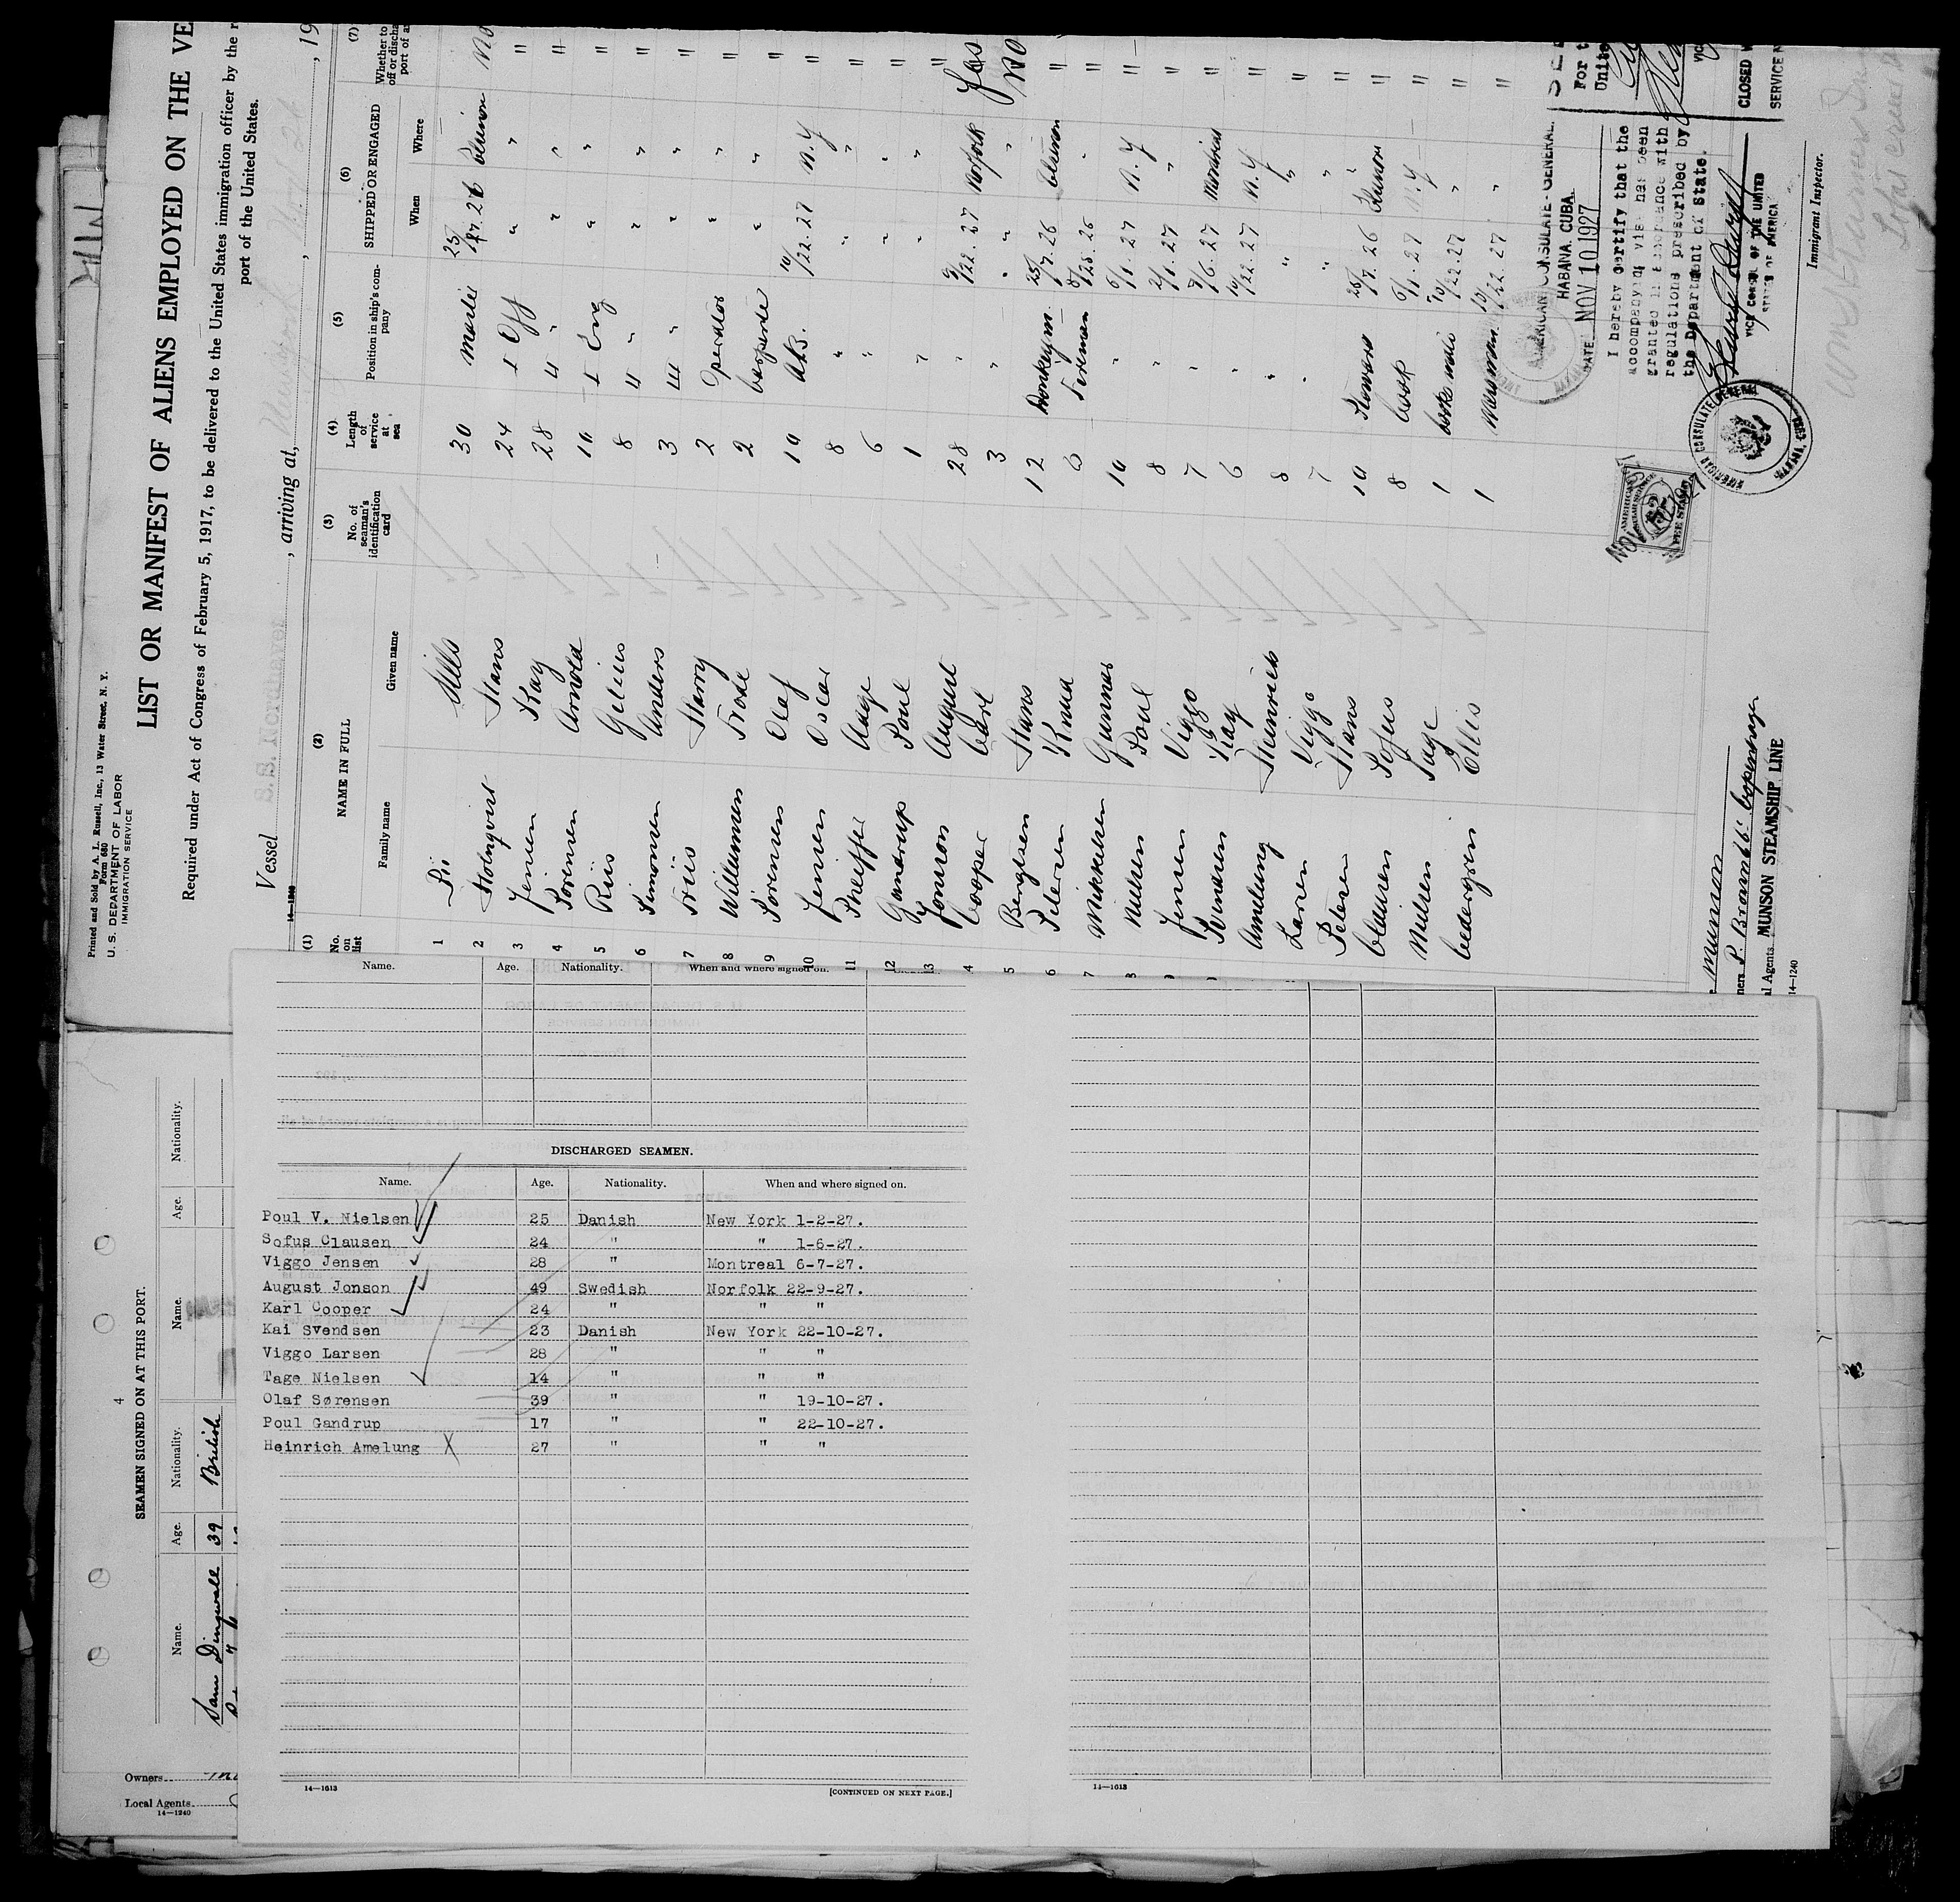 Printed and Sold by A. L. Russell, Inc., 13 Water Street, N. Y.
Form 680
U. S. DEPARTMENT OF LABOR
IMMIGRATION SERVICE
LIST OR MANIFEST OF ALIENS EMPLOYED ON THE VE
Required under Act of Congress of February 5, 1917, to be delivered to the United States immigration officer by the r
port of the United States.
Vessel S.S. Nordhavet , arriving at, , 19
(1) (2) (3) (4) (5) (6) (7)
No. on list NAME IN FULL No. of seaman's identification card Length of service at sea Position in ship's company SHIPPED OR ENGAGED Whether to
Family name Given name When Where
1 Pii Nills 30 Master 25/7.26 No
2 Holmqvist Hans 24 1 Off " " "
3 Jensen Kay 28 " "
4 Sörensen Arnold 10 1 Eng " " "
5 Riis 8 " " "
6 Simonsen Anders 3 " " "
7 Friis Harry 2 " " "
8 Willumsen Frode 2 " " "
9 Sörensen Olaf 10 A.B. 10/22.27 N.Y "
10 Jensen Oscar 8 " " " "
11 Pheiffer Aage 6 " " " "
12 Gandrup Poul 1 " " " "
13 Jonsson August 28 " 9/22.27 Norfolk Yes
4 Cooper Carl 3 " " " No
5 Bengtsen Hans 12 Donkeym. 25/7.26 "
6 Petersen Knud Fireman 8/25.26 " "
7 Mikkelsen Gunnar 10 " 6/1.27 N.Y "
8 Nielsen Poul 8 " 2/1.27 " "
Jensen Viggo 7 " 7/6.27 Montreal "
Svendsen Kay 6 " 10/22.27 N.Y "
Amelung Heinrich 8 " " " "
Larsen Viggo 7 " " " "
Petersen Hans 10 Steward 25/7.26 "
Clausen Sofus 8 Cook 6/1.27 N.Y "
Nielsen Tage 1 Cooks mate 10/22.27 " "
Cedergren Ellis 1 Messman 10/22.27 " "
AMERICAN CONSULATE-GENERAL.
HABANA, CUBA.
DATE NOV 10 1927
I hereby certify that the
accompanying visa has been
granted in accordance with
regulations prescribed by
the Department of State.
VICE CONSUL OF THE UNITED
STATES OF AMERICA
AMERICAN CONSULATE GENERAL
HABANA, CUBA
AMERICAN
FEE STAMP
For t
Unite
CLOSED
SERVICE
Immigrant Inspector.
Munson
P. Brown
al Agents MUNSON STEAMSHIP LINE
14—1240
4
SEAMEN SIGNED ON AT THIS PORT.
Name. Age. Nationality. Name. Age. Nationality.
Sam Dingwall 39 British
Owners
Local Agents
14—1240
Name. Age. Nationality. When and where signed on.
DISCHARGED SEAMEN.
Name. Age. Nationality. When and where signed on.
Poul V. Nielsen 25 Danish New York 1-2-27.
Sofus Clausen 24 " " 1-6-27.
Viggo Jensen 28 " Montreal 6-7-27.
August Jonson 49 Swedish Norfolk 22-9-27.
Karl Cooper 24 " " "
Kai Svendsen 23 Danish New York 22-10-27.
Viggo Larsen 28 " " "
Tage Nielsen 14 " " "
Olaf Sørensen 39 " " 19-10-27.
Poul Gandrup 17 " " 22-10-27.
Heinrich Amelung X 27 " " "
14—1613 [CONTINUED ON NEXT PAGE.]
14—1613